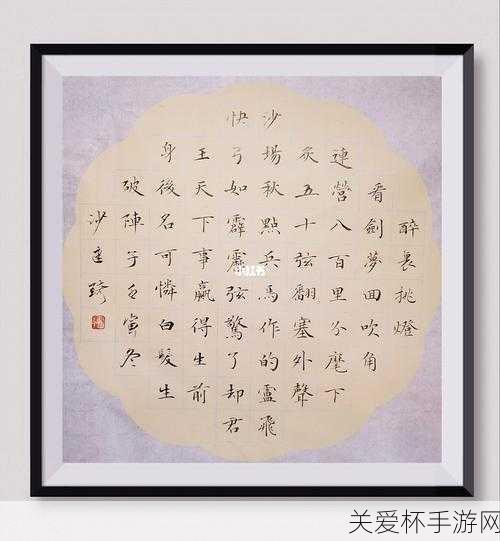 醉裏挑燈
看劍夢回吹角
連營八百里分麾下
炙五十弦翻塞外聲
沙場秋點兵馬作的盧飛
快弓如霹靂弦驚了却君
王天下事贏得生前
身後名可憐白髮生
破陣子壬寅冬
沙
小红书
关爱杯手游网